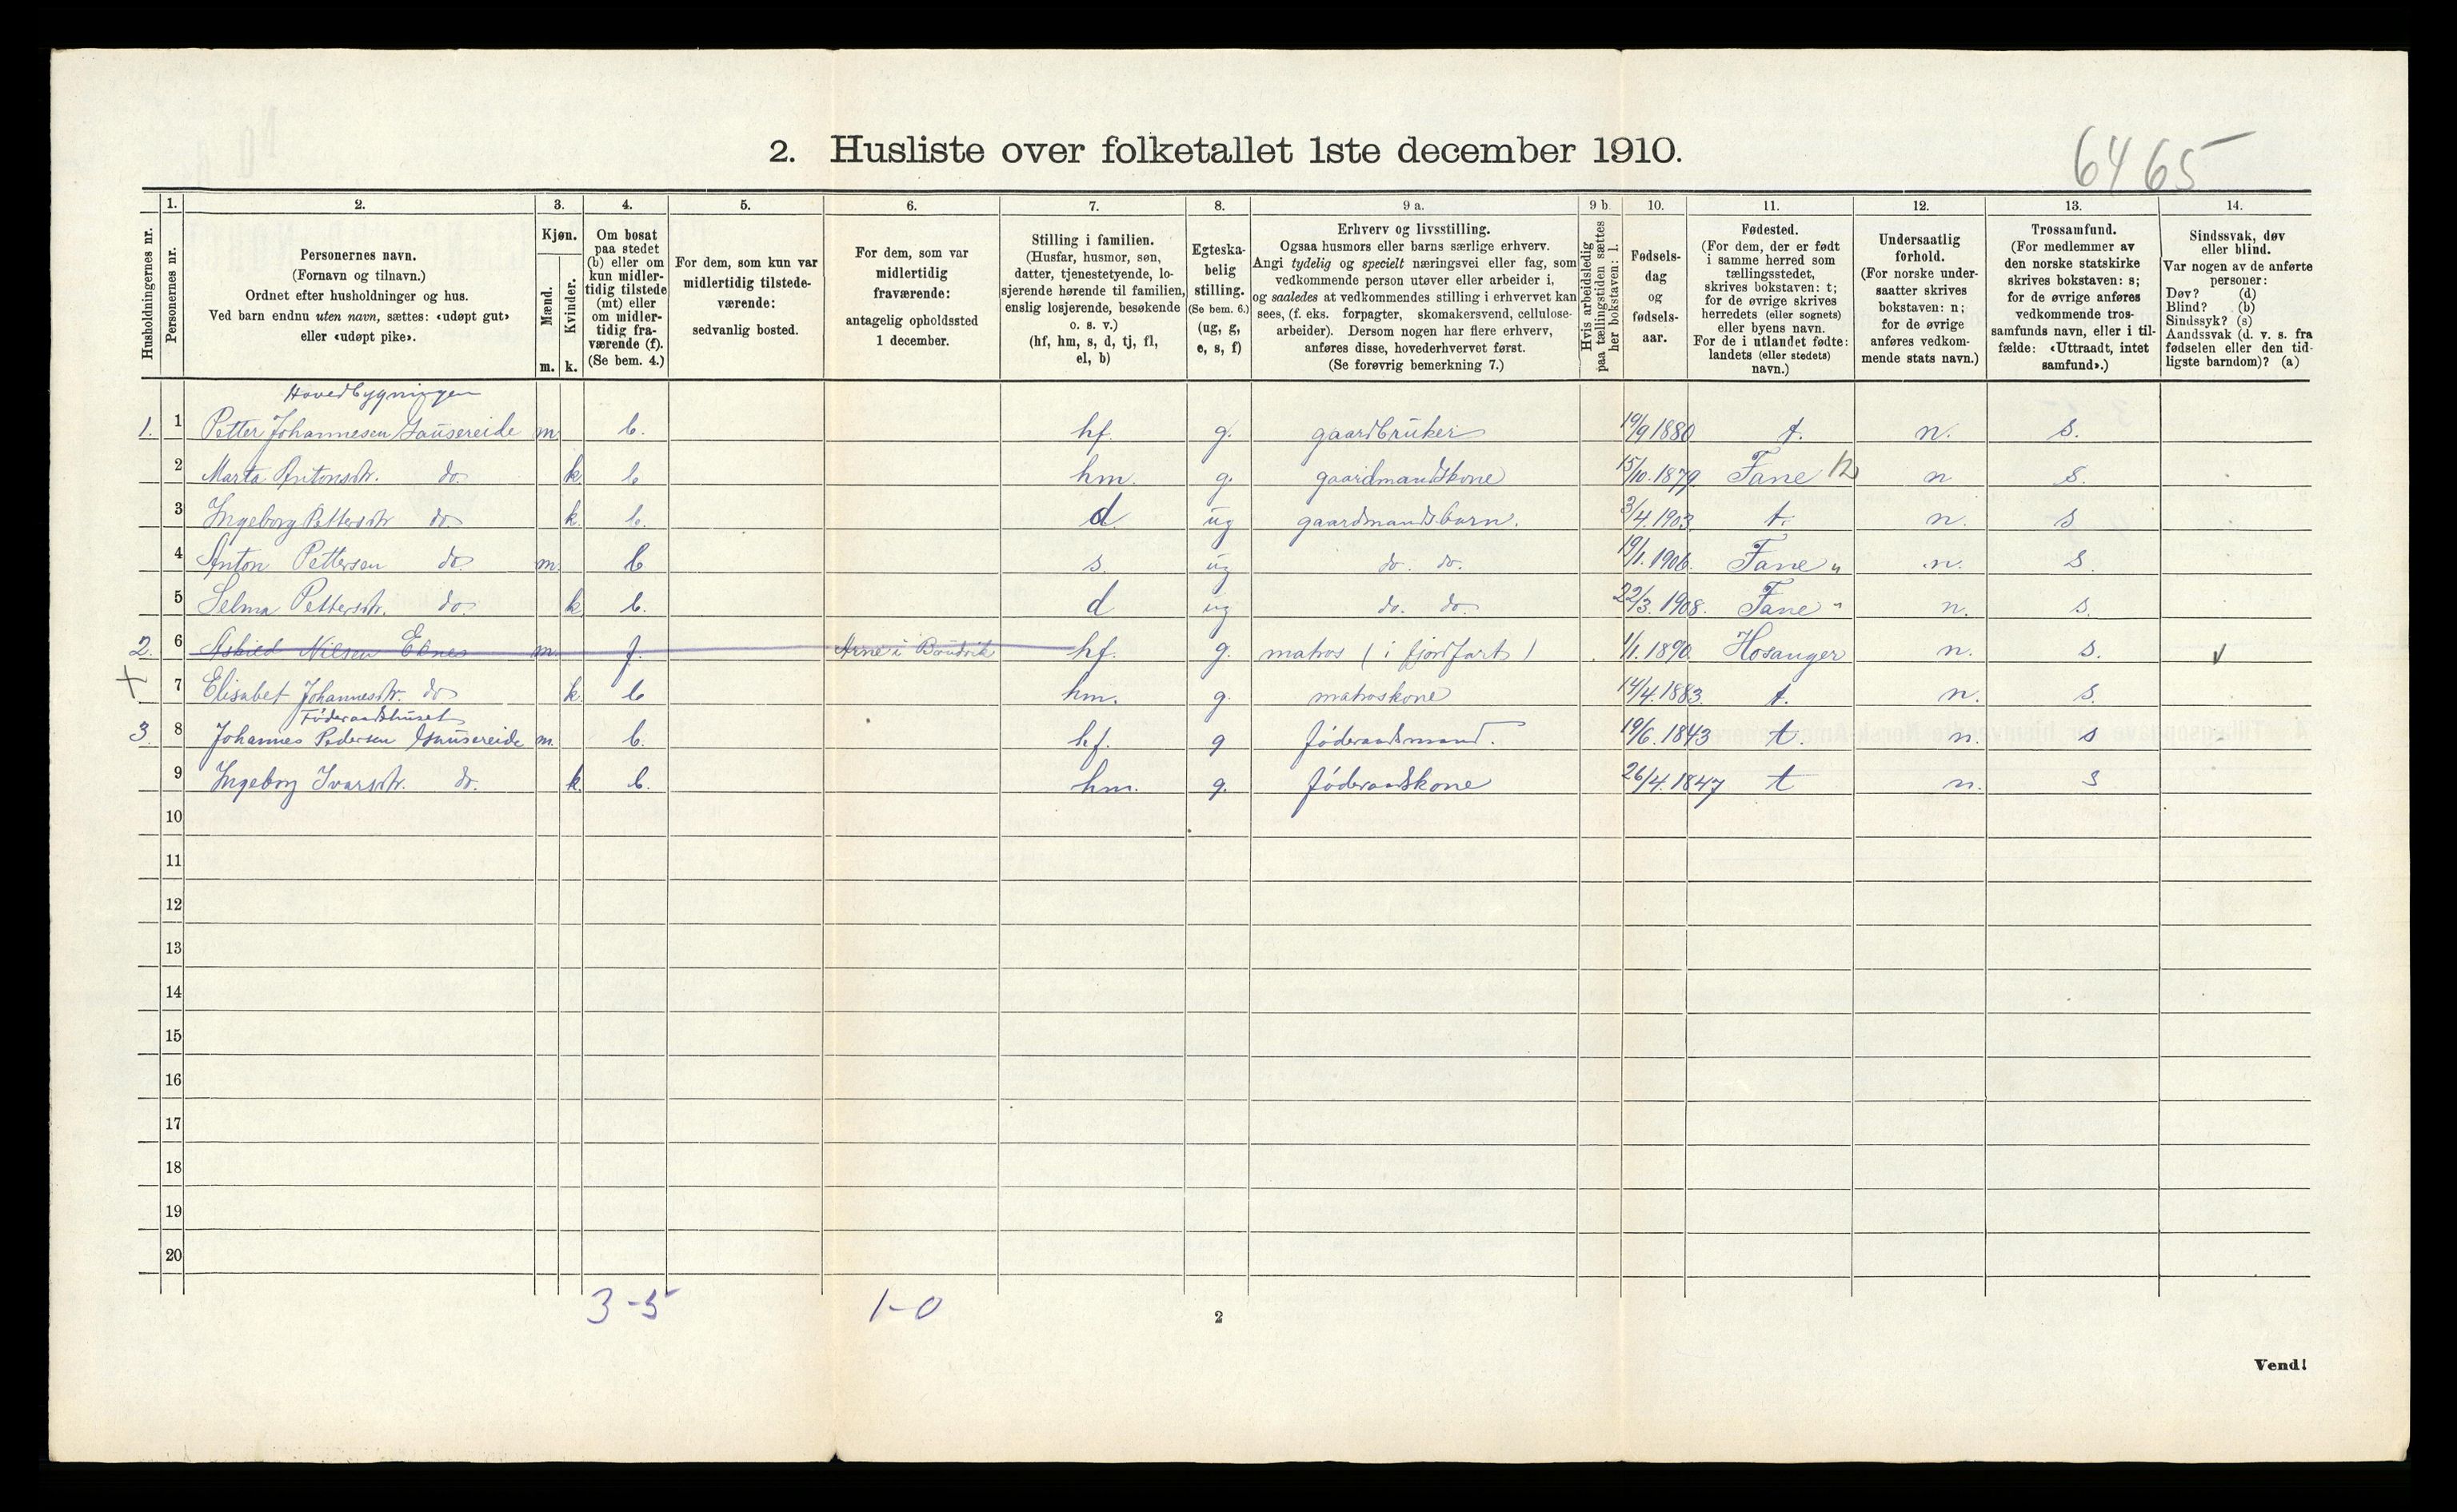 2. Husliste over folketallet 1ste december 1910.
6465
Husholdningernes nr.
1.
Personernes nr.
2.
Personernes navn.
(Fornavn og tilnavn.)
Ordnet efter husholdninger og hus.
Ved barn endnu uten navn, sættes: «udøpt gut»
eller «udøpt pike».
3.
Kjøn.
Mænd.
Kvinder.
m. k.
4.
Om bosat
paa stedet
(b) eller om
kun midler-
tidig tilstede
(mt) eller
om midler-
tidig fra-
værende (f).
(Se bem. 4.)
5.
For dem, som kun var
midlertidig tilstede-
værende:
sedvanlig bosted.
6.
For dem, som var
midlertidig
fraværende:
antagelig opholdssted
1 december.
7.
Stilling i familien.
(Husfar, husmor, søn,
datter, tjenestetyende, lo-
sjerende hørende til familien,
enslig losjerende, besøkende
o. s. v.)
(hf, hm, s, d, tj, fl,
el, b)
8.
Egteska-
belig
stilling.
(Se bem. 6.)
(ug, g,
e, s, f)
9 a.
Erhverv og livsstilling.
Ogsaa husmors eller barns særlige erhverv.
Angi tydelig og specielt næringsvei eller fag, som
vedkommende person utøver eller arbeider i,
og saaledes at vedkommendes stilling i erhvervet kan
sees, (f. eks. forpagter, skomakersvend, cellulose-
arbeider). Dersom nogen har flere erhverv,
anføres disse, hovederhvervet først.
(Se forøvrig bemerkning 7.)
9 b.
Hvis arbeidsledig
paa tællingstiden sættes
her bokstaven: l.
10.
Fødsels-
dag
og
fødsels-
aar.
11.
Fødested.
(For dem, der er født
i samme herred som
tællingsstedet,
skrives bokstaven: t;
for de øvrige skrives
herredets (eller sognets)
eller byens navn.
For de i utlandet fødte:
landets (eller stedets)
navn.)
12.
Undersaatlig
forhold.
(For norske under-
saatter skrives
bokstaven: n;
for de øvrige
anføres vedkom-
mende stats navn.)
13.
Trossamfund.
(For medlemmer av
den norske statskirke
skrives bokstaven: s;
for de øvrige anføres
vedkommende tros-
samfunds navn, eller i til-
fælde: «Uttraadt, intet
samfund».)
14.
Sindssvak, døv
eller blind.
Var nogen av de anførte
personer:
Døv? (d)
Blind? (b)
Sindssyk? (s)
Aandssvak (d. v. s. fra
fødselen eller den tid-
ligste barndom)? (a)
Hovedbygningen
1. 1 Petter Johannesen Gausereide m. b. hf. g. gaardbruker 19/9 1880 t. n. s.
2 Marta Antonsdtr. do. k. b hm. g. gaardmandskone 15/10. 1879 Fane 12 n s.
3 Ingeborg Pettersdtr do k. b. d ug gaardmandsbarn. 3/4. 1903 t. n. s
4 Anton Pettersen do. m. b s. ug do. do. 19/1. 1906. Fane " n. s.
5 Selma Pettersdtr. do. k b. d ug do. do. 22/3. 1908. Fane " n. s.
2. 6 Askild Nilsen Eknes m. f. Arne i hf. g. matros (i fjordfart) 1/1. 1890 Hosanger n. s. v
+ 7 Elisabet Johannesdtr. do k. b hm. g. matroskone 14/4. 1883. t. n. s.
Føderaadshuset
3 8 Johannes Pedersen Gausereide m. b. hf. g føderaadsmand. 19/6. 1843 t. n. s
9 Ingeborg Ivarsdtr. do. k b. hm. g. føderaadskone 26/4. 1847 t n. s
10
11
12
13
14
15
16
17
18
19
20
3-5 1-0
2
Vend!